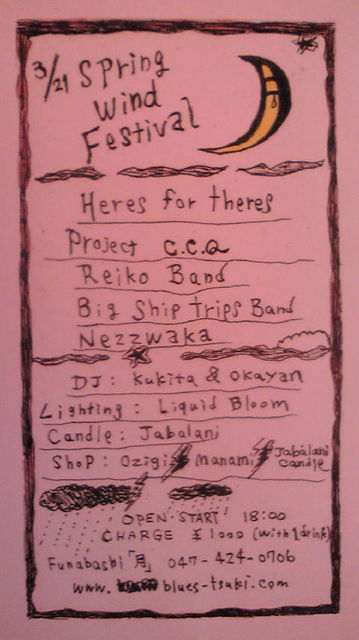 3/21 Spring
Wind
Festival
Heres for theres
Project c.c.a
Reiko Band
Big Ship Trips Band
Nezzwaka
DJ: Kukita & Okayan
Lighting: Liquid Bloom
Candle: Jabalani
Shop: Ozigi Manami Jabalani candle
OPEN・START 18:00
CHARGE ¥1000 (with 1drink)
Funabashi「月」 047-424-0706
www. blues-tsuki.com